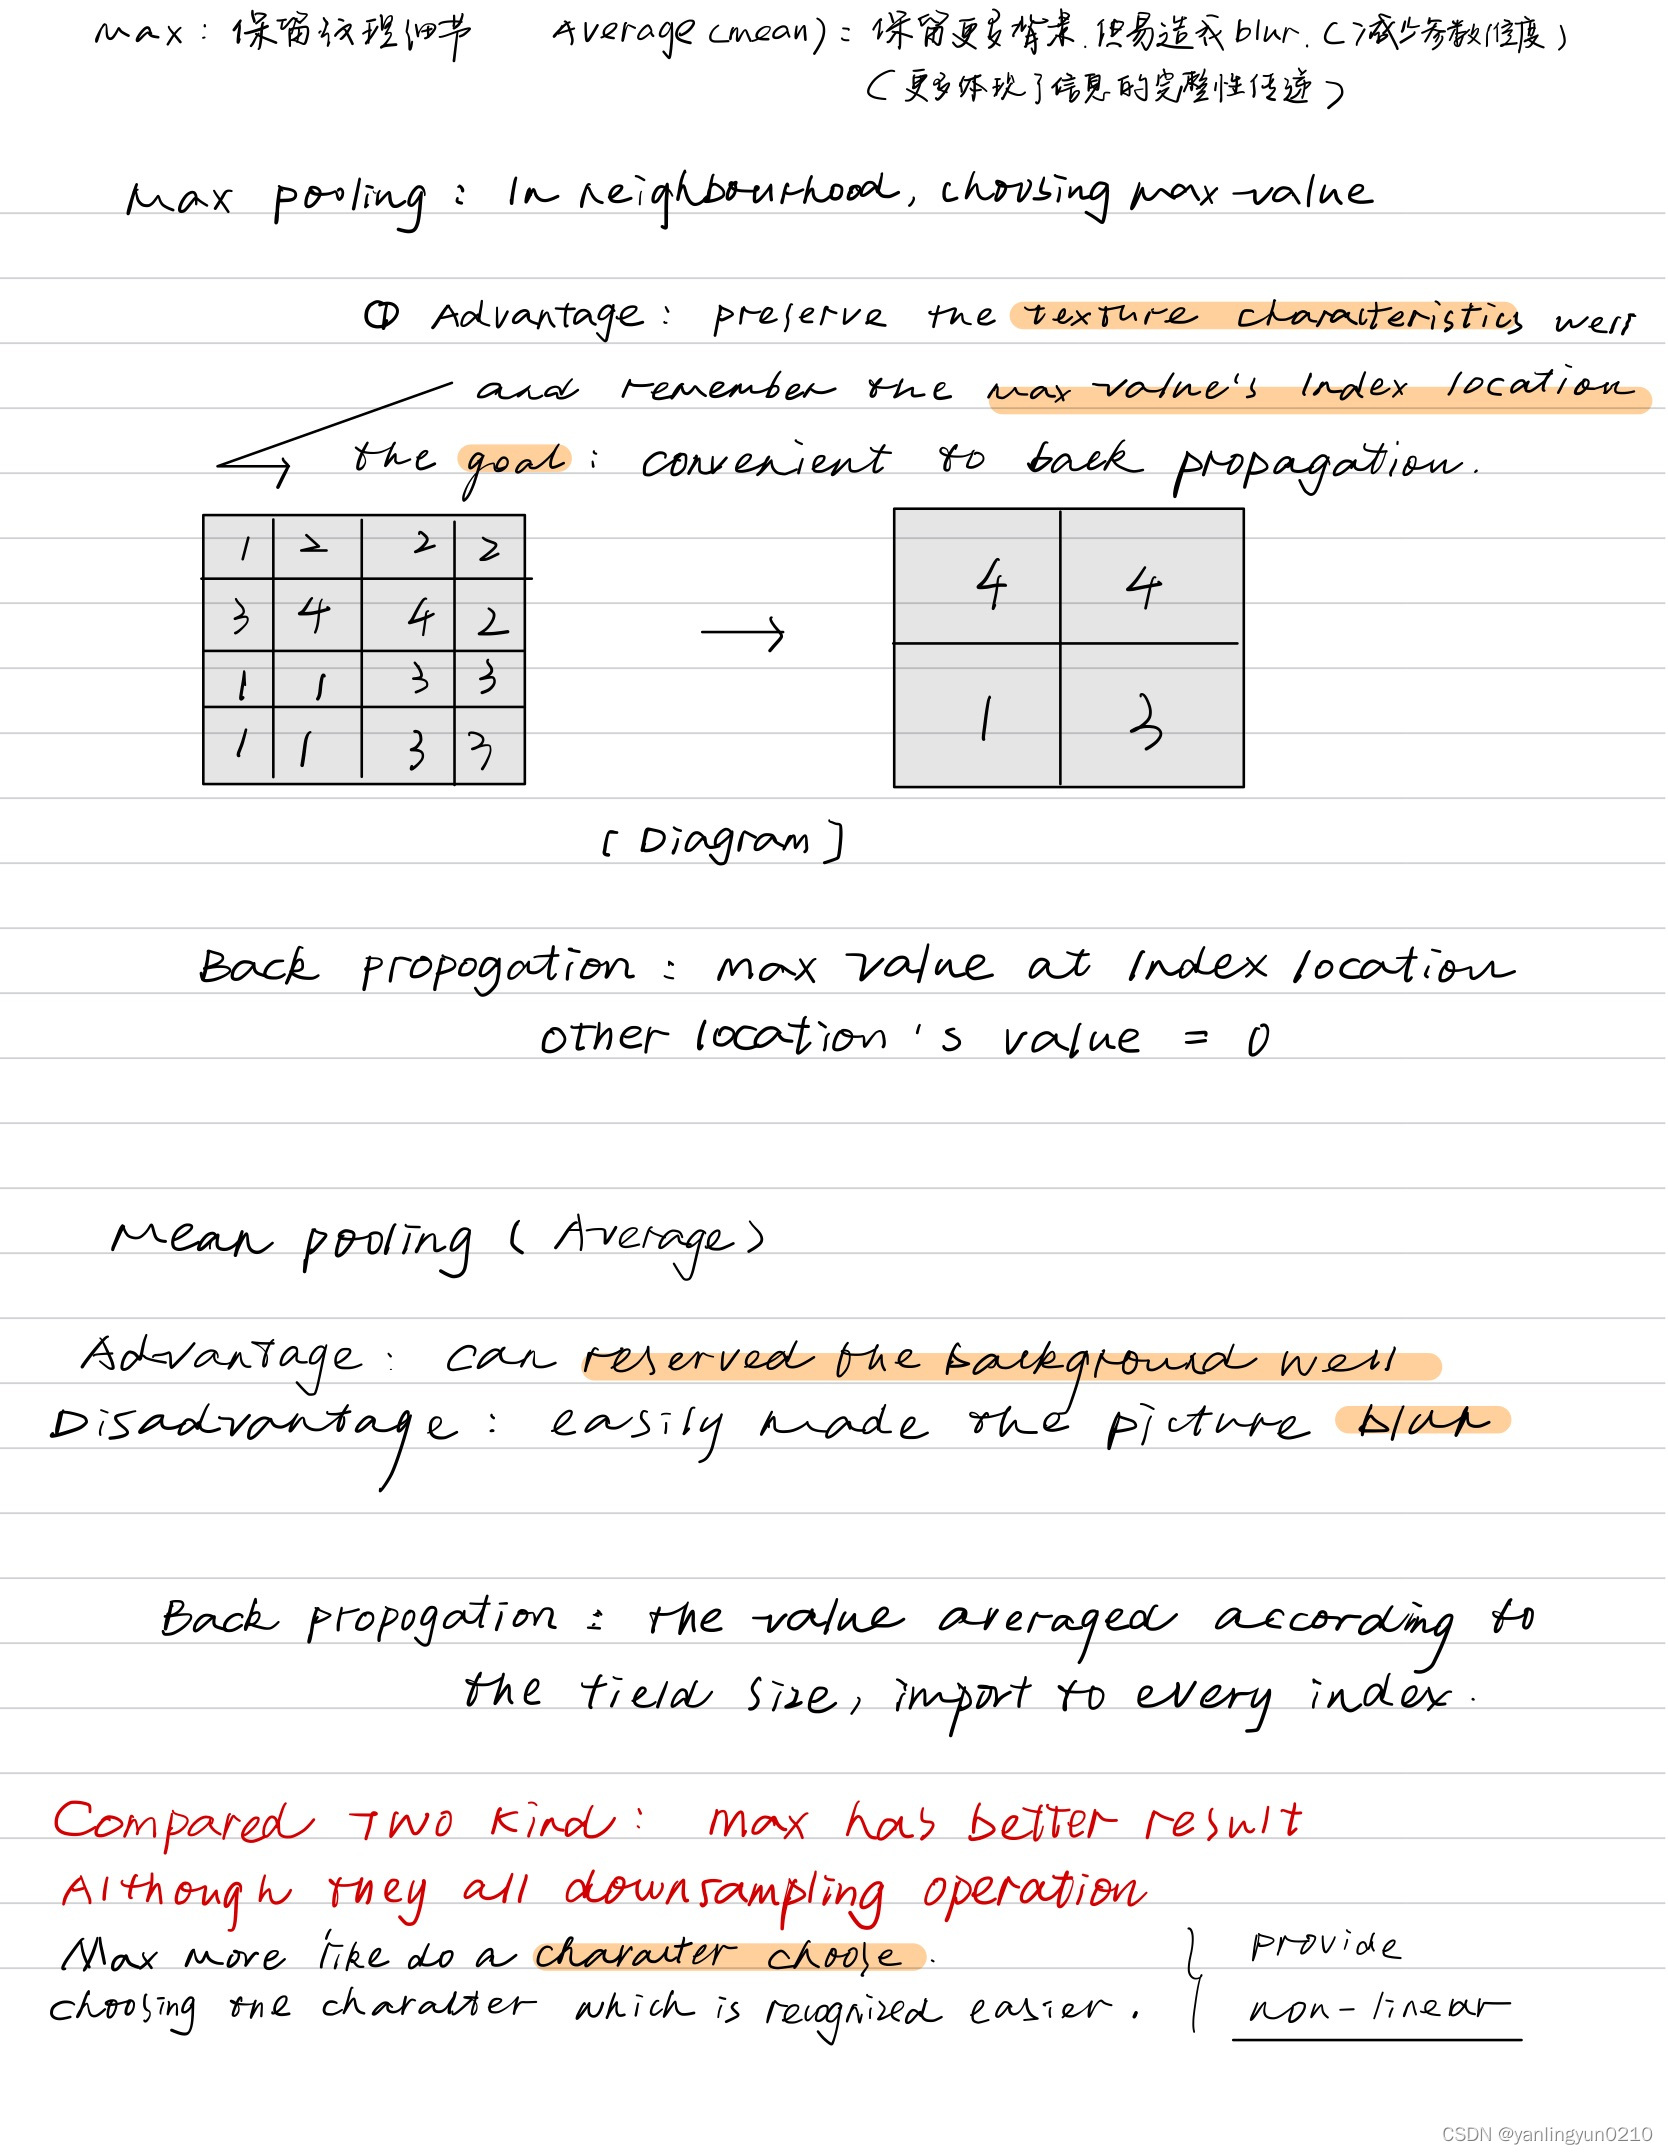 max：保留纹理细节 Average (mean)：保留更多背景，但易造成blur.（减少参数/维度）
（更多体现了信息的完整性传递）
Max pooling : In neighbourhood, choosing max-value
① Advantage : preserve the texture characteristics well
and remember the max value's index location
the goal : convenient to back propagation.
1 2 2 2
3 4 4 2
1 1 3 3
1 1 3 3
→
4 4
1 3
[ Diagram ]
Back propogation : max value at index location
other location's value = 0
Mean pooling ( Average )
Advantage : can reserved the background well
Disadvantage : easily made the picture blur
Back propogation : the value averaged according to
the field size, import to every index.
Compared Two kind : max has better result
Although they all downsampling operation
Max more like do a character choose.
choosing the character which is recognized easier.
provide
non-linear
CSDN @yanlingyun0210